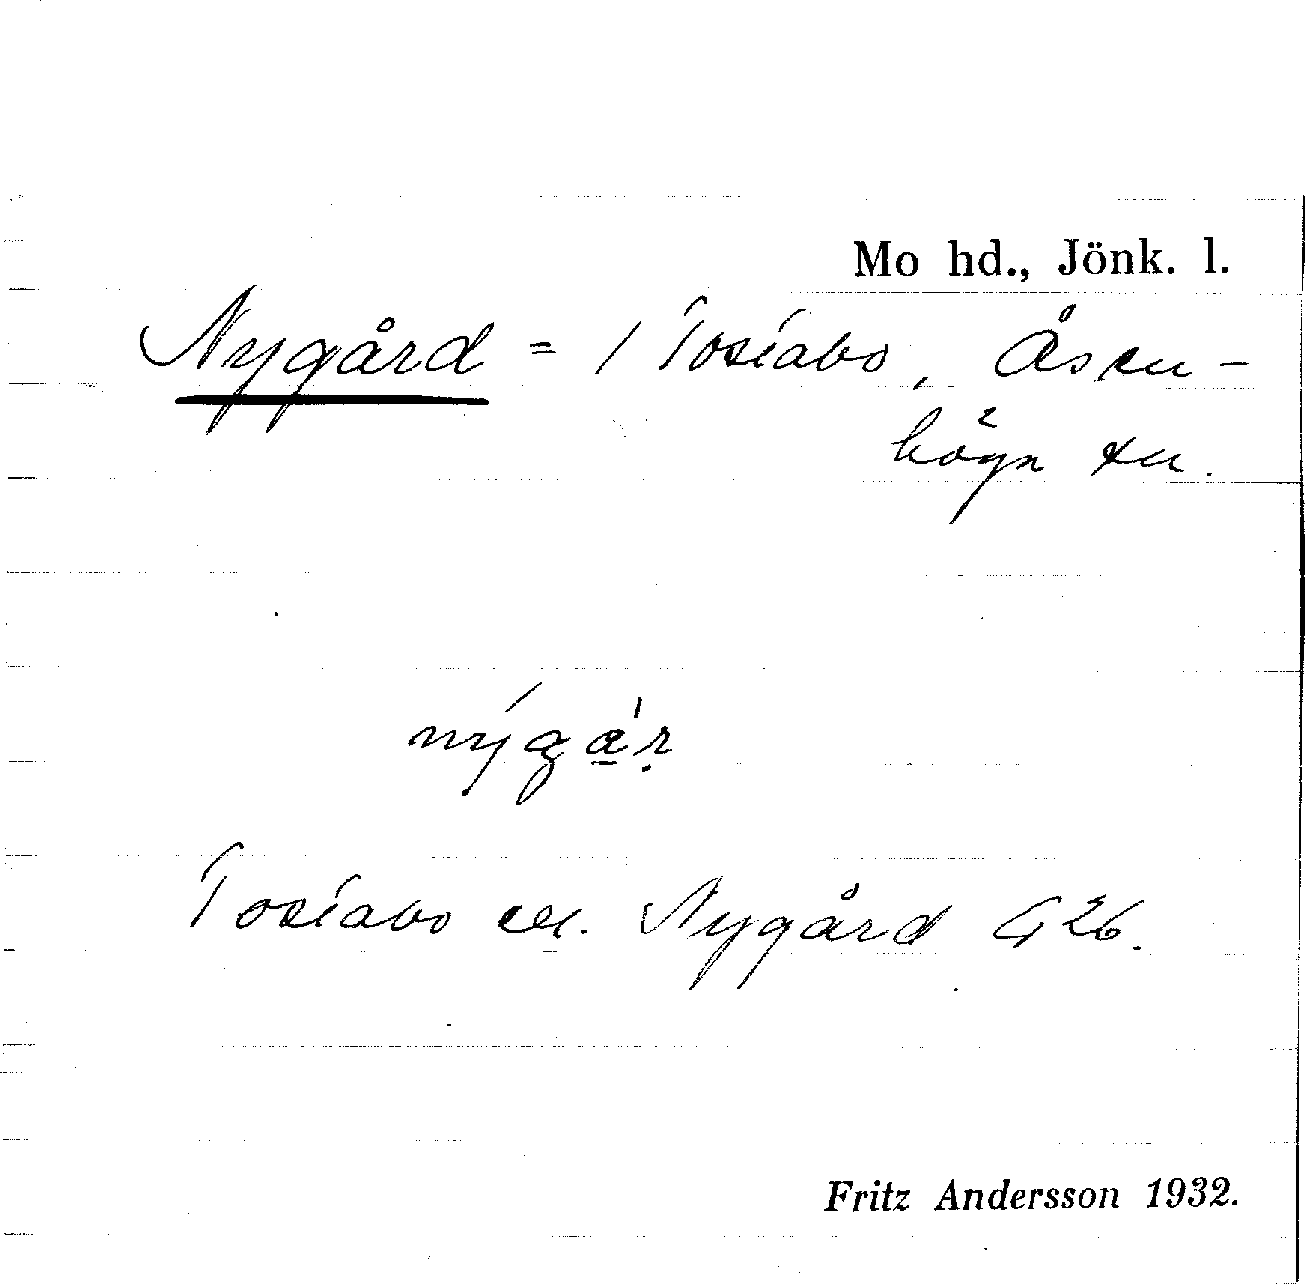 Mo hd., Jönk. l.
Nygård = / Tosíabo, Åsen-
höga sn.
nýgá̱ṛ
Tosíabo el. Nygård G 26.
Fritz Andersson 1932.